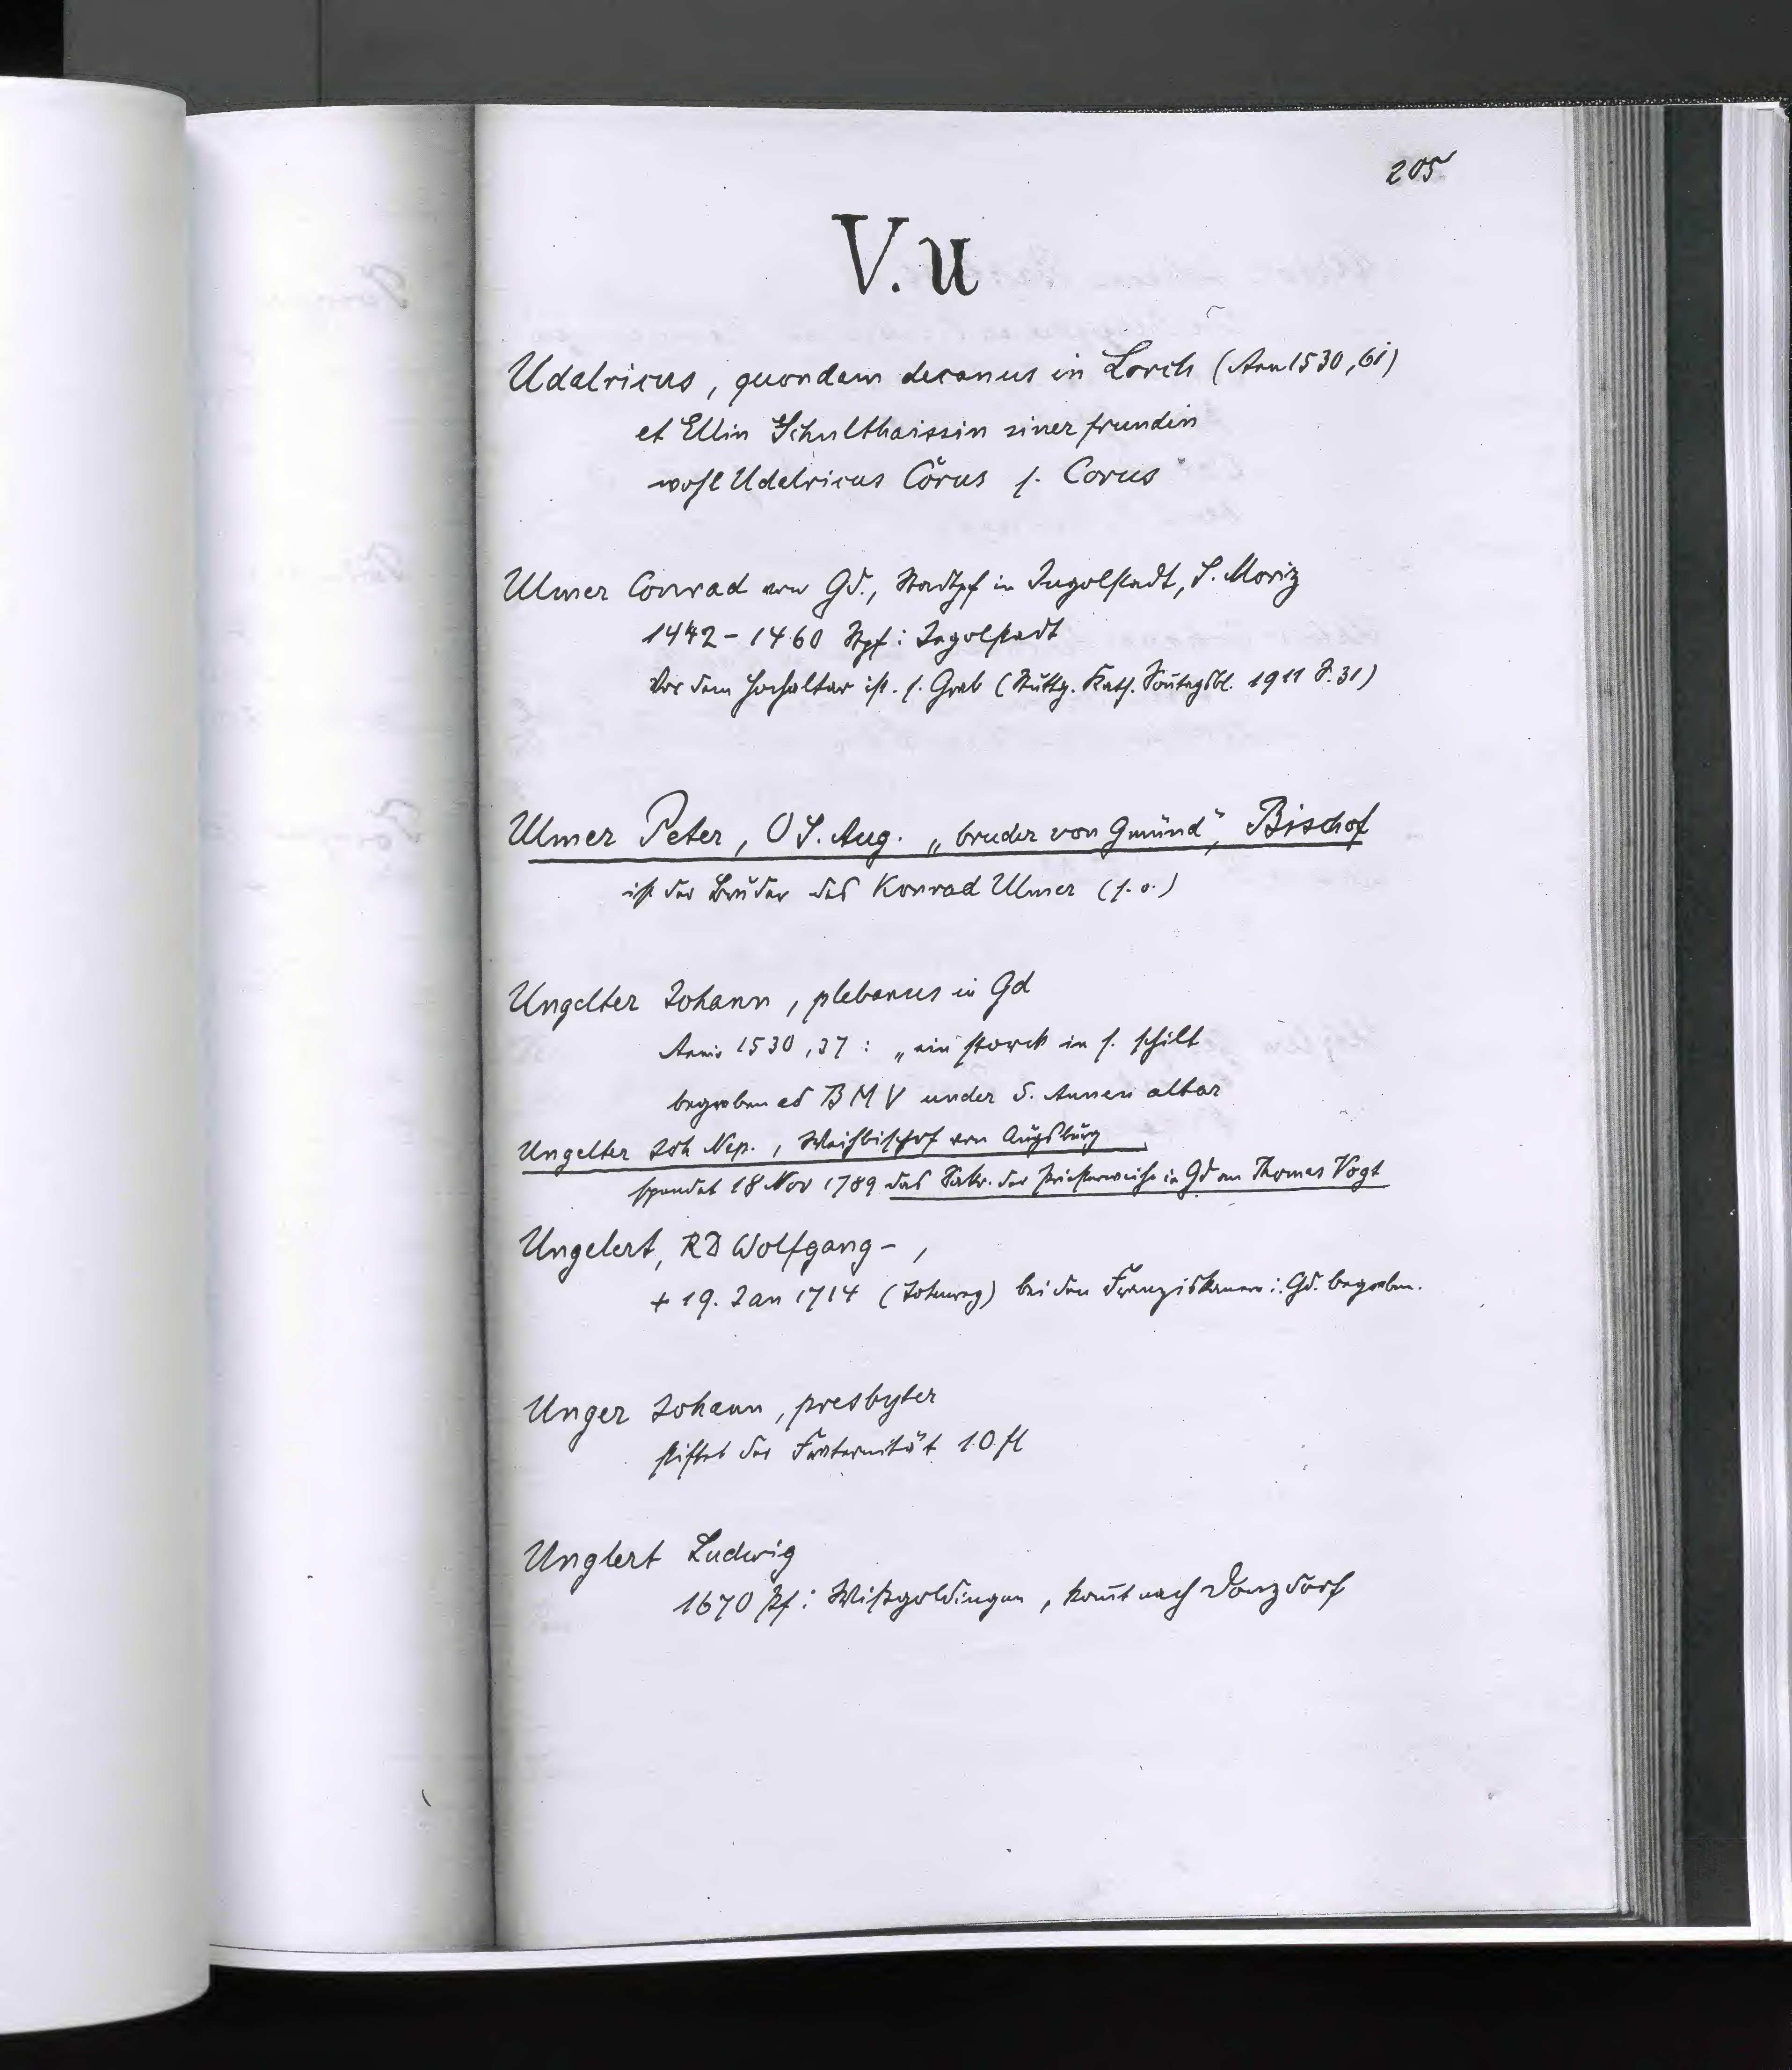 205
V. U
Udalricus, quondam decanus in Lorch (Ann 1530, 61)
et Ellin Schulthaissin siner frundin
wohl Udalricus Cŏrus s. Corus
Ulmer Conrad von Gd., Stadtpf in Ingolstadt, S. Moriz
1442 – 1460 Stpf i Ingolstadt
Vor dem Hochaltar ist s. Grab (Stuttg. Kath. Sonntagsbl. 1911 S. 31)
Ulmer Peter, O S. Aug. „bruder von Gmünd", Bischof
ist der Bruder des Konrad Ulmer (s. o.)
Ungelter Johann, plebanus in Gd
Anniv 1530, 37 : „ein storck in s. schilt
begraben ad B M V under S. Annen altar
Ungelter Joh Nep., Weihbischof von Augsburg
spendet 18 Nov 1789 das Sakr. der Priesterweihe in Gd an Thomas Vogt
Ungelert, RD Wolfgang – ,
+ 19. Jan 1714 () bei den Franziskanern i. Gd. begraben.
Unger Johann, presbyter
stiftet der Fraternität 10 fl
Unglert Ludwig
1670 Pf i Wißgoldingen, kom̄t nach Donzdorf